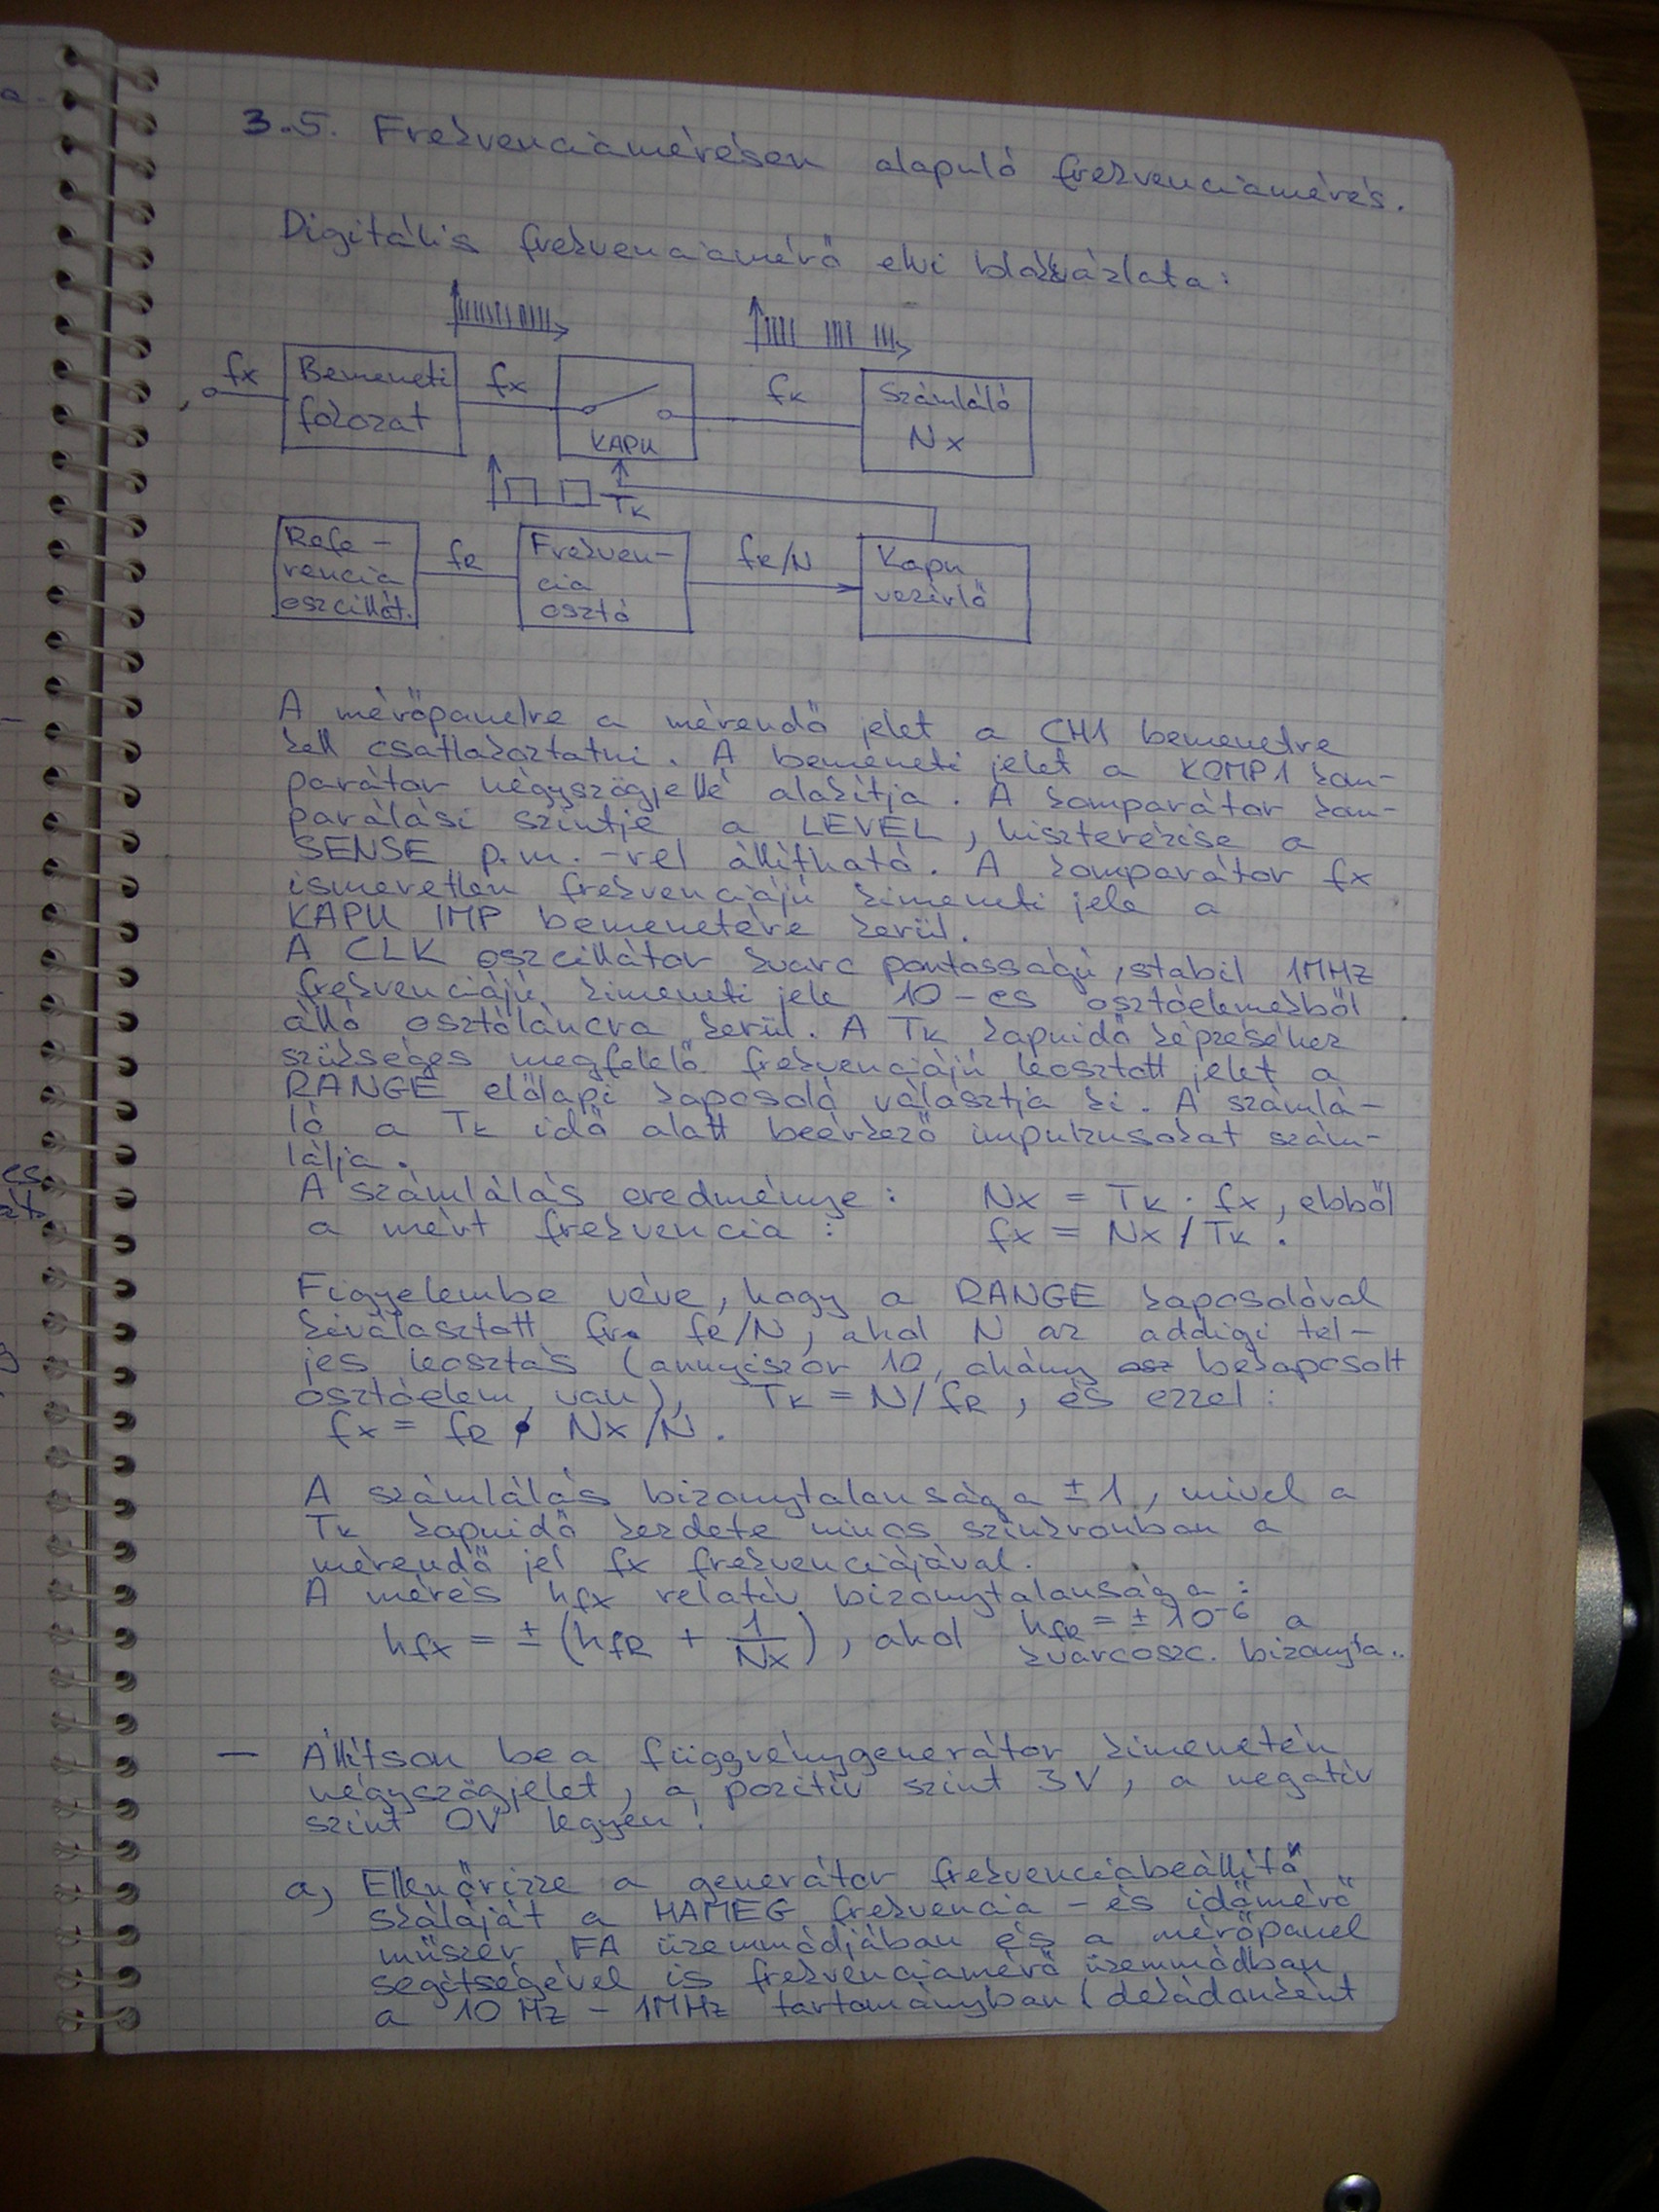 3.5. Frekvenciamérésen alapuló frekvenciamérés.
Digitális frekvenciamérő elvi blokkvázlata:
fx
Bemeneti
fokozat
fx
KAPU
fk
Számláló
Nx
Tk
Refe-
rencia
oszcillát.
fR
Frekven-
cia
osztó
fR/N
Kapu
vezérlő
A mérőpanelre a mérendő jelet a CH1 bemenetre
kell csatlakoztatni. A bemeneti jelet a KOMP1 kom-
parátor négyszögjellé alakítja. A komparátor kom-
parálási szintje a LEVEL, hiszterézise a
SENSE p.m.-rel állítható. A komparátor fx
ismeretlen frekvenciájú kimeneti jele a
KAPU IMP bemenetére kerül.
A CLK oszcillátor kvarc pontosságú, stabil 1MHz
frekvenciájú kimeneti jele 10-es osztóelemekből
álló osztóláncra kerül. A Tk kapuidő képzéséhez
szükséges megfelelő frekvenciájú leosztott jelet a
RANGE előlapi kapcsoló választja ki. A számlá-
ló a Tk idő alatt beérkező impulzusokat szám-
lálja.
A számlálás eredménye: Nx = Tk · fx, ebből
a mért frekvencia: fx = Nx / Tk.
Figyelembe véve, hogy a RANGE kapcsolóval
kiválasztott fr. fR/N, ahol N az addigi tel-
jes leosztás (annyiszor 10, ahány osz bekapcsolt
osztóelem van), Tk = N/fR, és ezzel:
fx = fR · Nx/N.
A számlálás bizonytalansága ±1, mivel a
Tk kapuidő kezdete nincs szinkronban a
mérendő jel fx frekvenciájával.
A mérés hfx relatív bizonytalansága:
hfx = ± (hfR + 1/Nx), ahol hfR = ± 10⁻⁶ a
kvarcoszc. bizonyta..
— Állítson be a függvénygenerátor kimenetén
négyszögjelet, a pozitív szint 3V, a negatív
szint 0V legyen!
a, Ellenőrizze a generátor frekvenciabeállító
skáláját a HAMEG frekvencia- és időmérő
műszer FA üzemmódjában és a mérőpanel
segítségével is frekvenciamérő üzemmódban
a 10 Hz - 1MHz tartományban (dekádonként